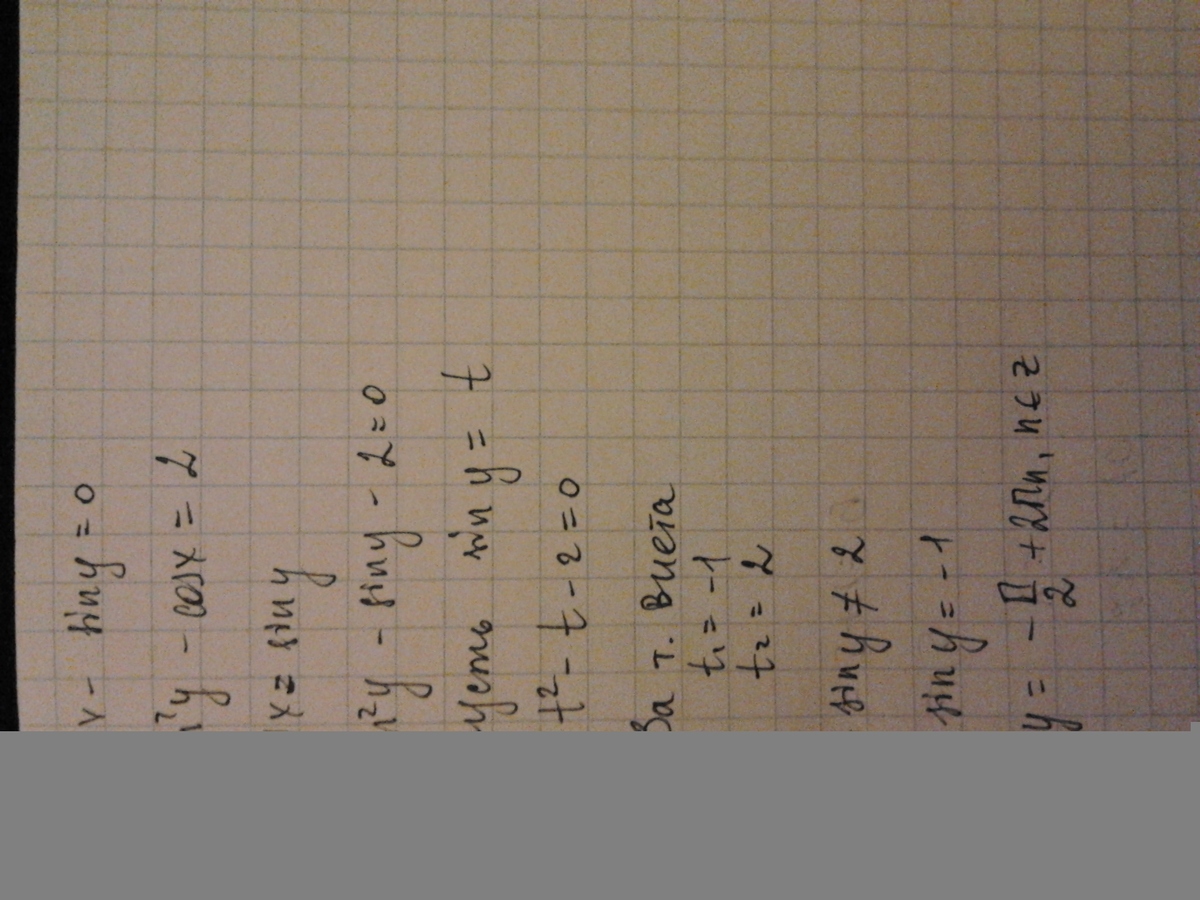 x - sin y = 0
n²y - cosx = 2
x = sin y
n²y - sin y - 2 = 0
усть sin y = t
t² - t - 2 = 0
За т. Виета
t₁ = -1
t₂ = 2
sin y ≠ 2
sin y = -1
y = - П/2 + 2Пn, n ∈ z